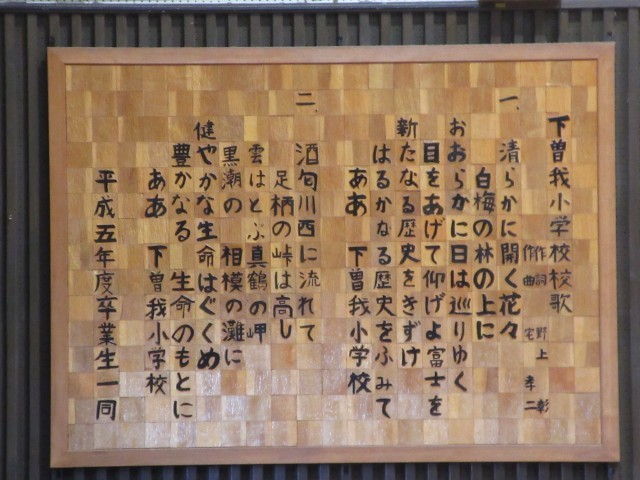 下曽我小学校校歌
作詞 野上 彰
作曲 宅 孝二
一、
清らかに開く花々
白梅の林の上に
おおらかに日は巡りゆく
目をあげて仰げよ富士を
新たなる歴史をきずけ
はるかなる歴史をふみて
ああ 下曽我小学校
二、
酒匂川西に流れて
足柄の峠は高し
雲はとぶ真鶴の岬
黒潮の 相模の灘に
健やかな生命はぐくめ
豊かなる 生命のもとに
ああ 下曽我小学校
平成五年度卒業生一同